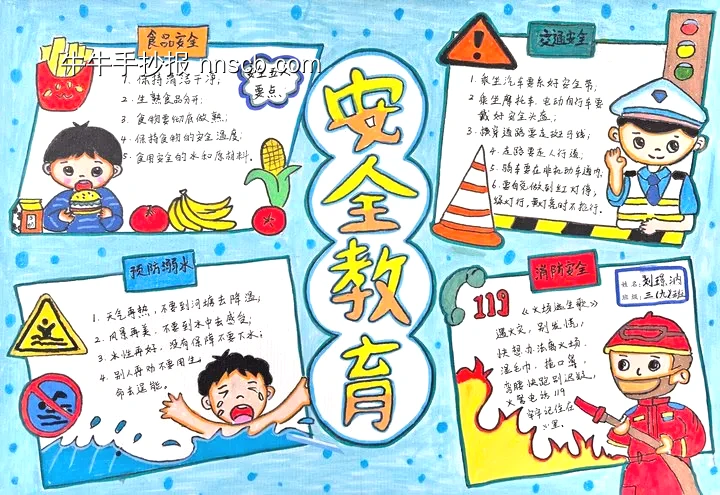 食品安全
牛牛手抄报 nnscb.com
安全五大
要点
1. 保持清洁干净,
2. 生熟食品分开;
3. 食物要彻底做熟;
4. 保持食物的安全温度;
5. 食用安全的水和原材料.
安全教育
交通安全
1. 乘坐汽车要系好安全带;
2. 乘坐摩托车、电动自行车要
戴好安全头盔;
3. 横穿道路要走斑马线;
4. 走路要走人行道;
5. 骑车要在非机动车道内,
6. 要自觉做到红灯停,
绿灯行,黄灯亮时不抢行.
预防溺水
1. 天气再热,不要到河塘去降温;
2. 风景再美,不要到水中去感受;
3. 水性再好,没有保障不要下水;
4. 别人再劝不要用生
命去逞能.
消防安全
119
姓名:
班级: 三(九)班
《火场逃生歌》
遇火灾,别发慌,
快想办法离火场,
湿毛巾,捂口鼻,
弯腰快跑别迟疑,
火警电话119
牢牢记住在
心里.